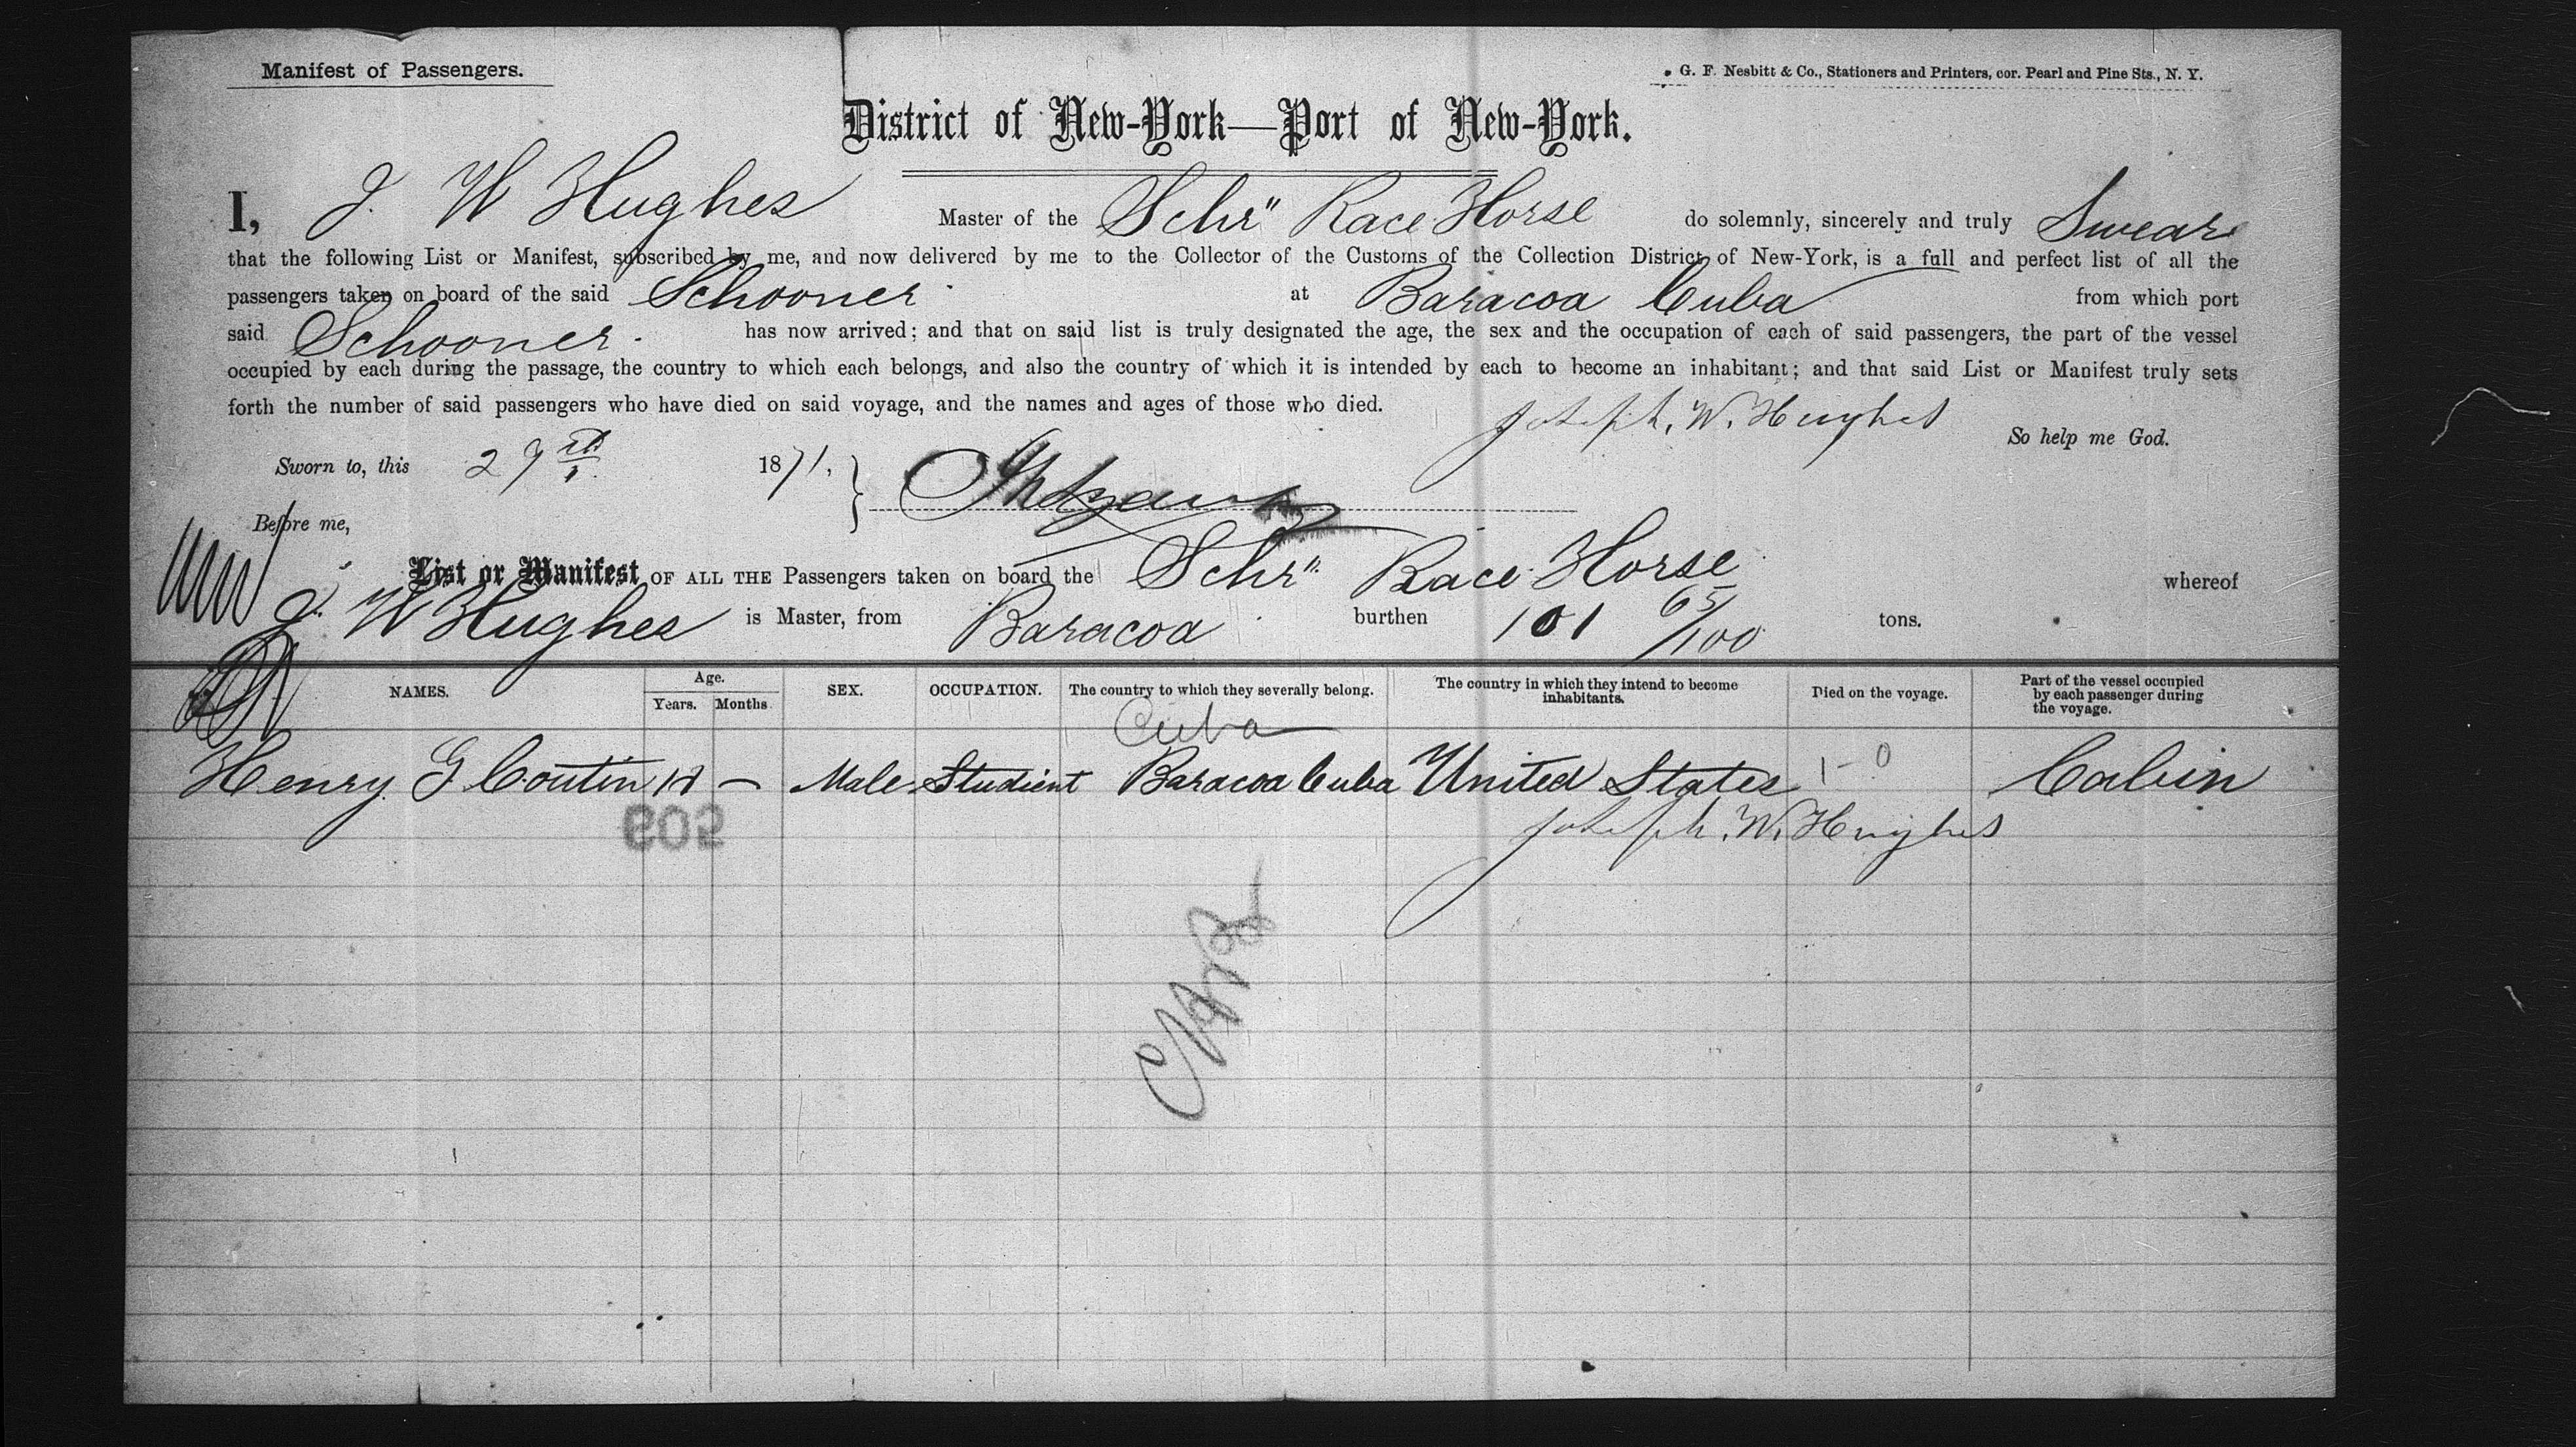 Manifest of Passengers.
G. F. Nesbitt & Co., Stationers and Printers, cor. Pearl and Pine Sts., N. Y.
District of New-York—Port of New-York.
I, J. W Hughes Master of the Schr" Race Horse do solemnly, sincerely and truly Swear
that the following List or Manifest, subscribed by me, and now delivered by me to the Collector of the Customs of the Collection District of New-York, is a full and perfect list of all the
passengers taken on board of the said Schooner at Baracoa Cuba from which port
said Schooner. has now arrived; and that on said list is truly designated the age, the sex and the occupation of each of said passengers, the part of the vessel
occupied by each during the passage, the country to which each belongs, and also the country of which it is intended by each to become an inhabitant; and that said List or Manifest truly sets
forth the number of said passengers who have died on said voyage, and the names and ages of those who died.
Joseph. W. Hughes
So help me God.
Sworn to, this 1871,
Before me,
List or Manifest OF ALL THE Passengers taken on board the Schr" Race Horse whereof
J. W Hughes is Master, from Baracoa burthen 101 65/100 tons.
NAMES. Age. Years. Months SEX. OCCUPATION. The country to which they severally belong. The country in which they intend to become inhabitants. Died on the voyage. Part of the vessel occupied by each passenger during the voyage.
Cuba
Henry G Coutin — Male Studient Baracoa Cuba United States 1-0 Cabin
Joseph. W. Hughes